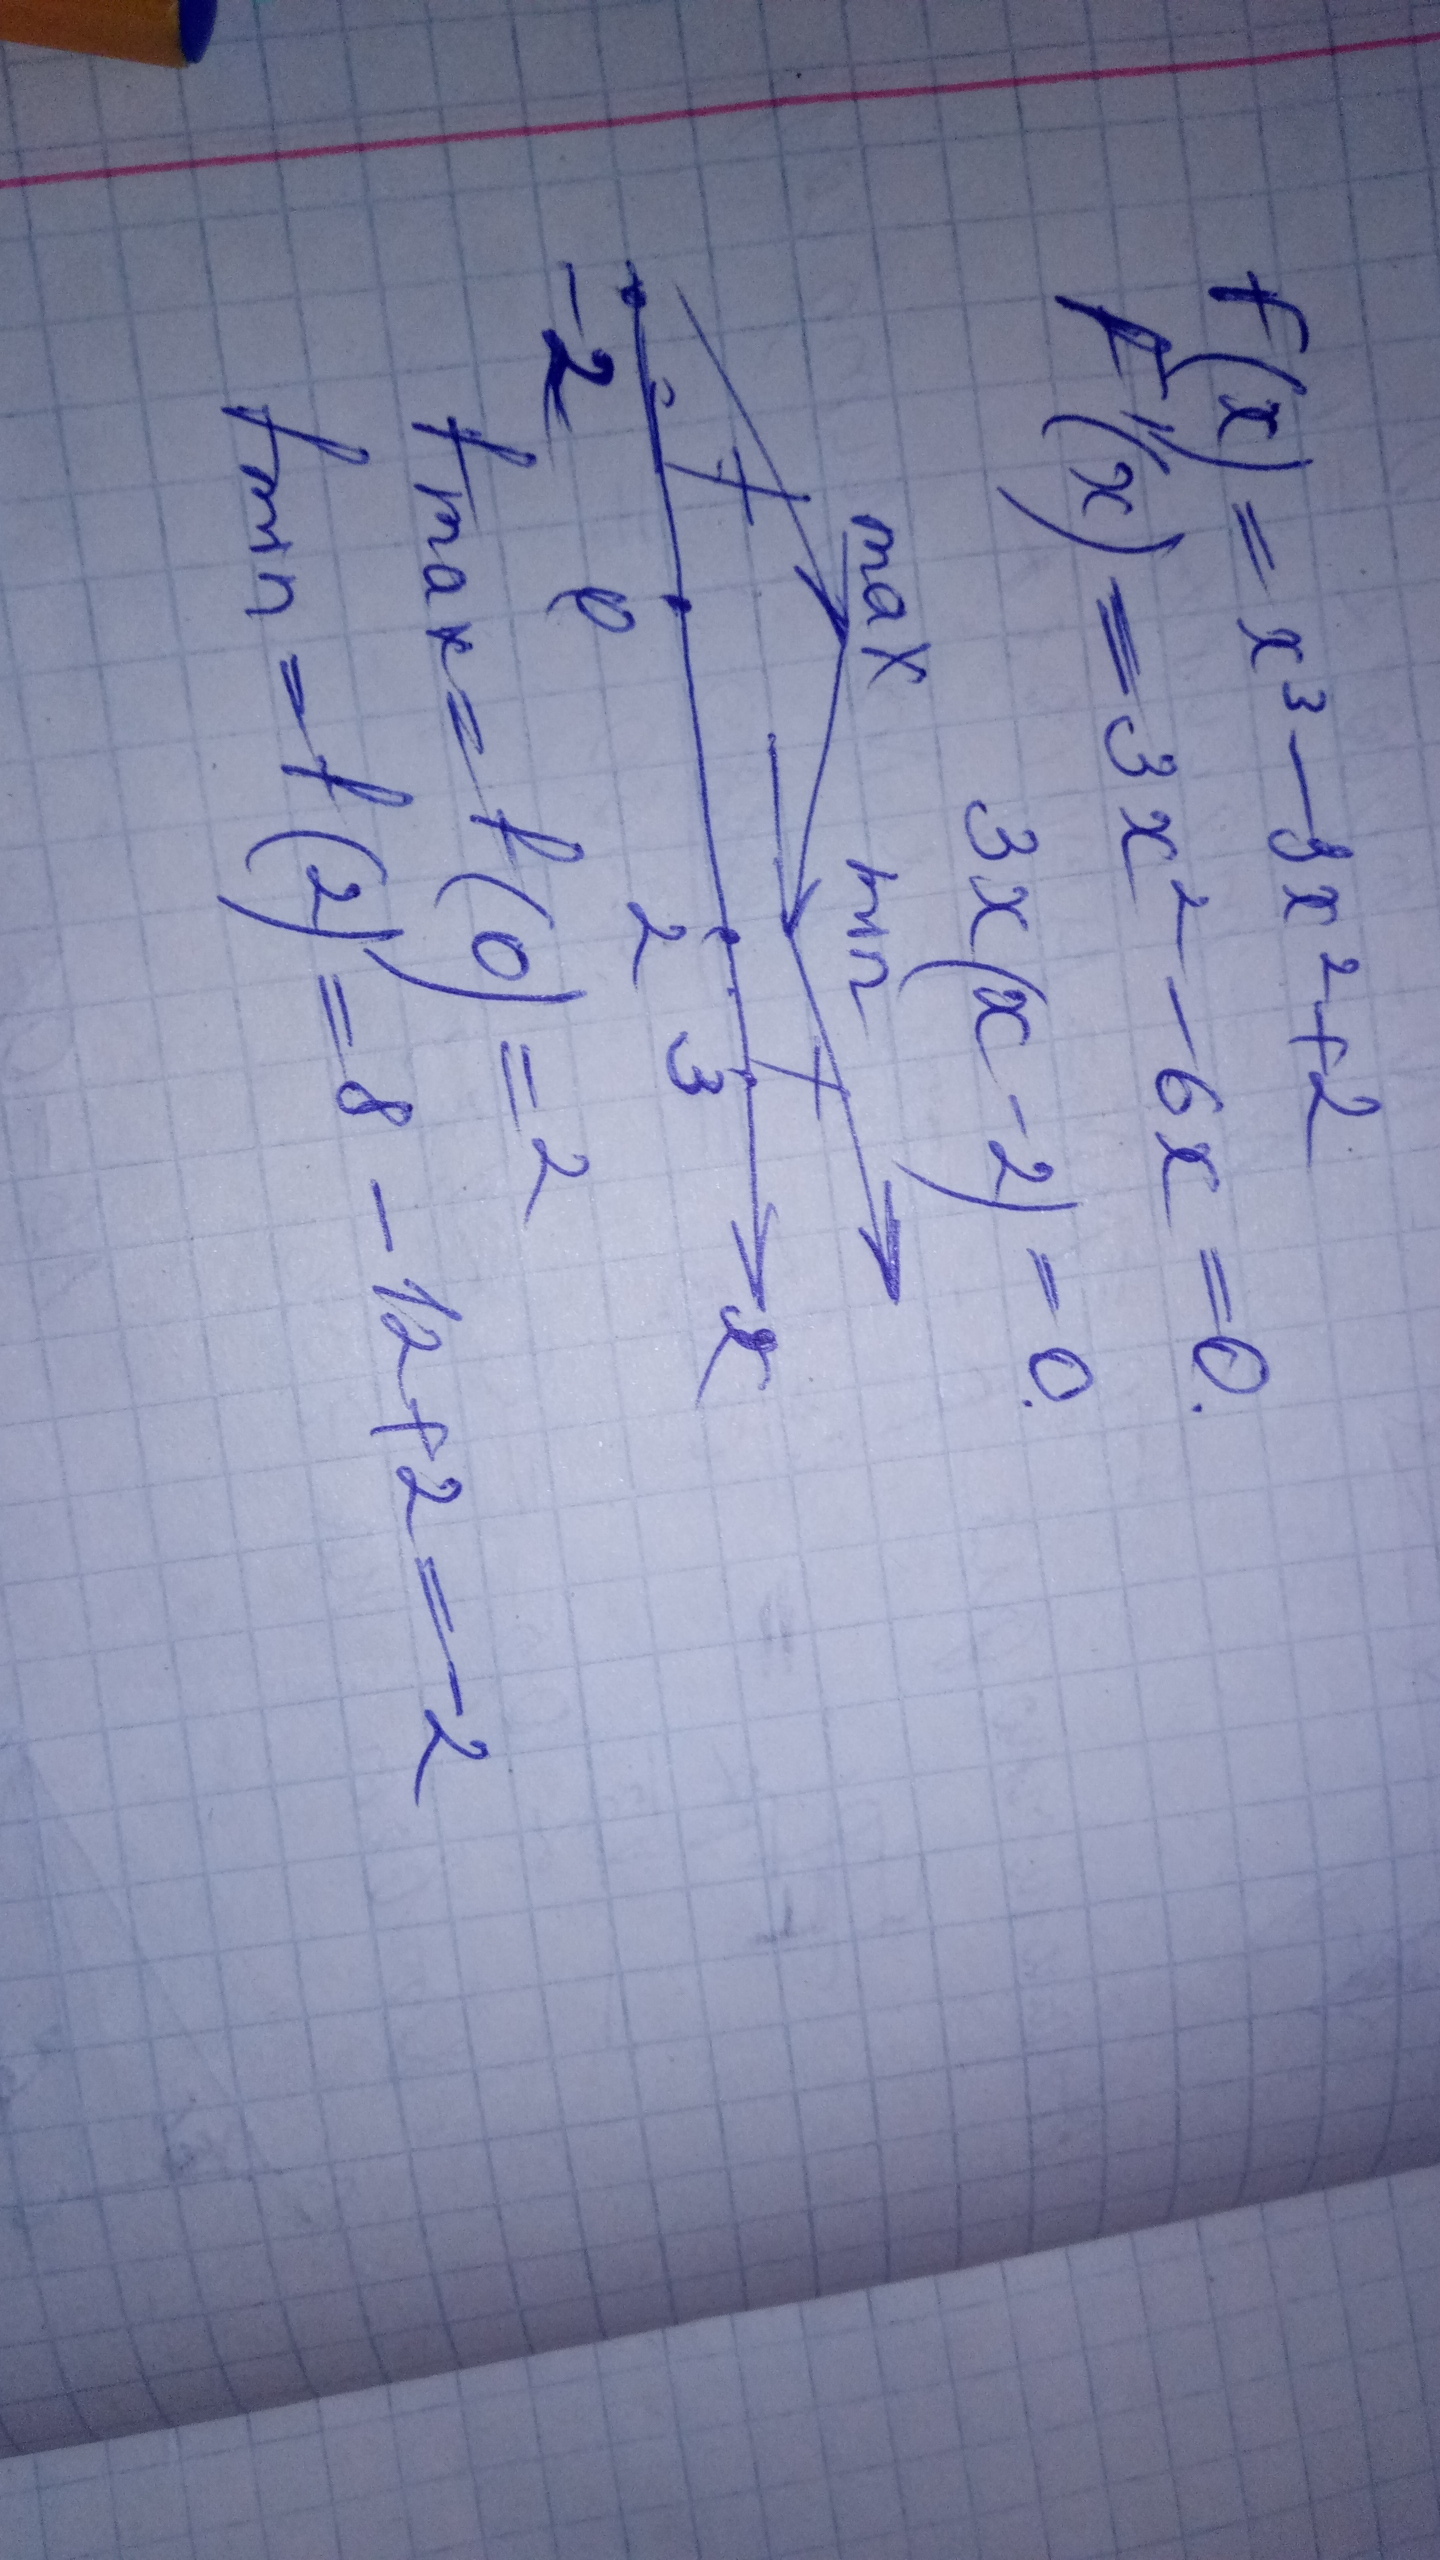 f(x) = x³ - 3x² + 2
f'(x) = 3x² - 6x = 0.
3x(x - 2) = 0.
max min
+ - +
-2 0 2 3 x
fmax = f(0) = 2
fmin = f(2) = 8 - 12 + 2 = -2